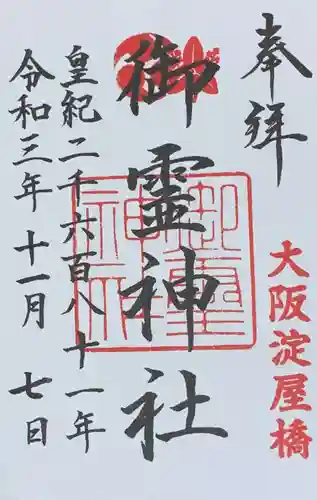 奉拝
大阪淀屋橋
御霊神社
皇紀二千六百八十一年
令和三年 十一月 七日